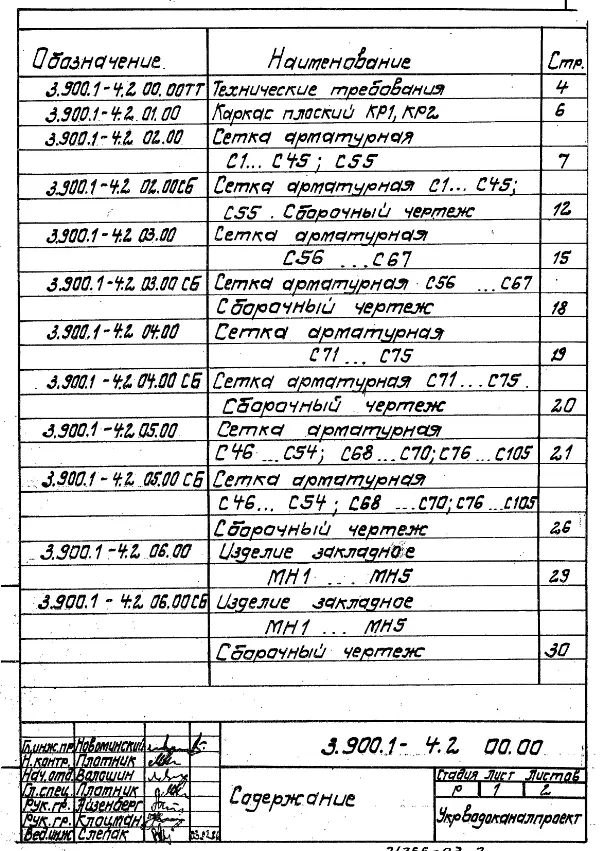 Обозначение. Наименование Стр.
3.900.1-4.2 00.00ТТ Технические требования 4
3.900.1-4.2 01.00 Каркас плоский КР1, КР2 6
3.900.1-4.2 02.00 Сетка арматурная
С1... С45; С55 7
3.900.1-4.2 02.00СБ Сетка арматурная С1... С45;
С55. Сборочный чертеж 12
3.900.1-4.2 03.00 Сетка арматурная
С56 ...С67 15
3.900.1-4.2 03.00 СБ Сетка арматурная С56 ...С67
Сборочный чертеж 18
3.900.1-4.2 04.00 Сетка арматурная
С71 ... С75 19
3.900.1-4.2 04.00 СБ Сетка арматурная С71... С75.
Сборочный чертеж 20
3.900.1-4.2 05.00 Сетка арматурная
С46 ...С54; С68 ...С70; С76 ...С105 21
3.900.1-4.2 05.00 СБ Сетка арматурная
С46... С54; С68 ...С70; С76 ...С105
Сборочный чертеж 26
3.900.1-4.2 06.00 Изделие закладное
МН1 ... МН5 29
3.900.1-4.2 06.00СБ Изделие закладное
МН1 ... МН5
Сборочный чертеж 30
3.900.1-4.2 00.00
Гл.инж.пр. Новоминский
Н.контр. Плотник
Нач.отд. Волошин
Гл.спец. Плотник
Рук.гр. Айзенберг
Рук.гр. Клоцман
Вед.инж. Слепак
Содержание
Стадия Лист Листов
Р 1 2
Укрводоканалпроект